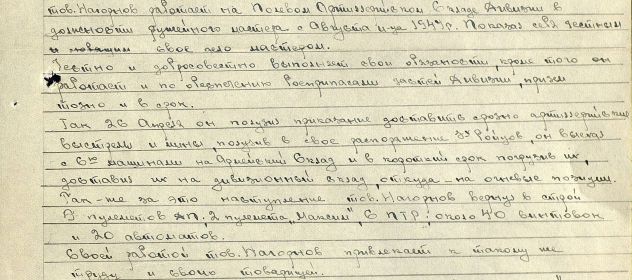 тов. Нагорнов работает на Полевом Артиллерийском Складе дивизии в
должности оружейного мастера с августа м-ца 1943 г. Показал себя честным
и знающим свое дело мастером.
Честно и добросовестно выполняет свои обязанности, кроме того он
работает и по обеспечению боеприпасами частей дивизии, причем
точно и в срок.
Так 26 Апреля он получил приказание доставить срочно артиллерийские
выстрелы и мины, получив в свое распоряжение бойцов, он выехал
с 6ю машинами на Армейский Склад и в короткий срок погрузив их,
доставил их на дивизионный склад, откуда - на огневые позиции.
Так-же за это наступление тов. Нагорнов вернул в строй
пулеметов ДП, 2 пулемета "Максим", 6 ПТР, около 40 винтовок
и 20 автоматов.
Своей работой тов. Нагорнов привлекает к такому же
труду и своих товарищей.